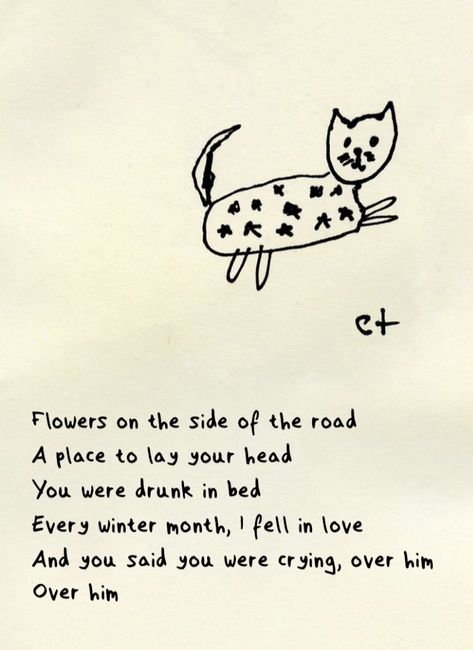 ct
Flowers on the side of the road
A place to lay your head
You were drunk in bed
Every winter month, I fell in love
And you said you were crying, over him
Over him